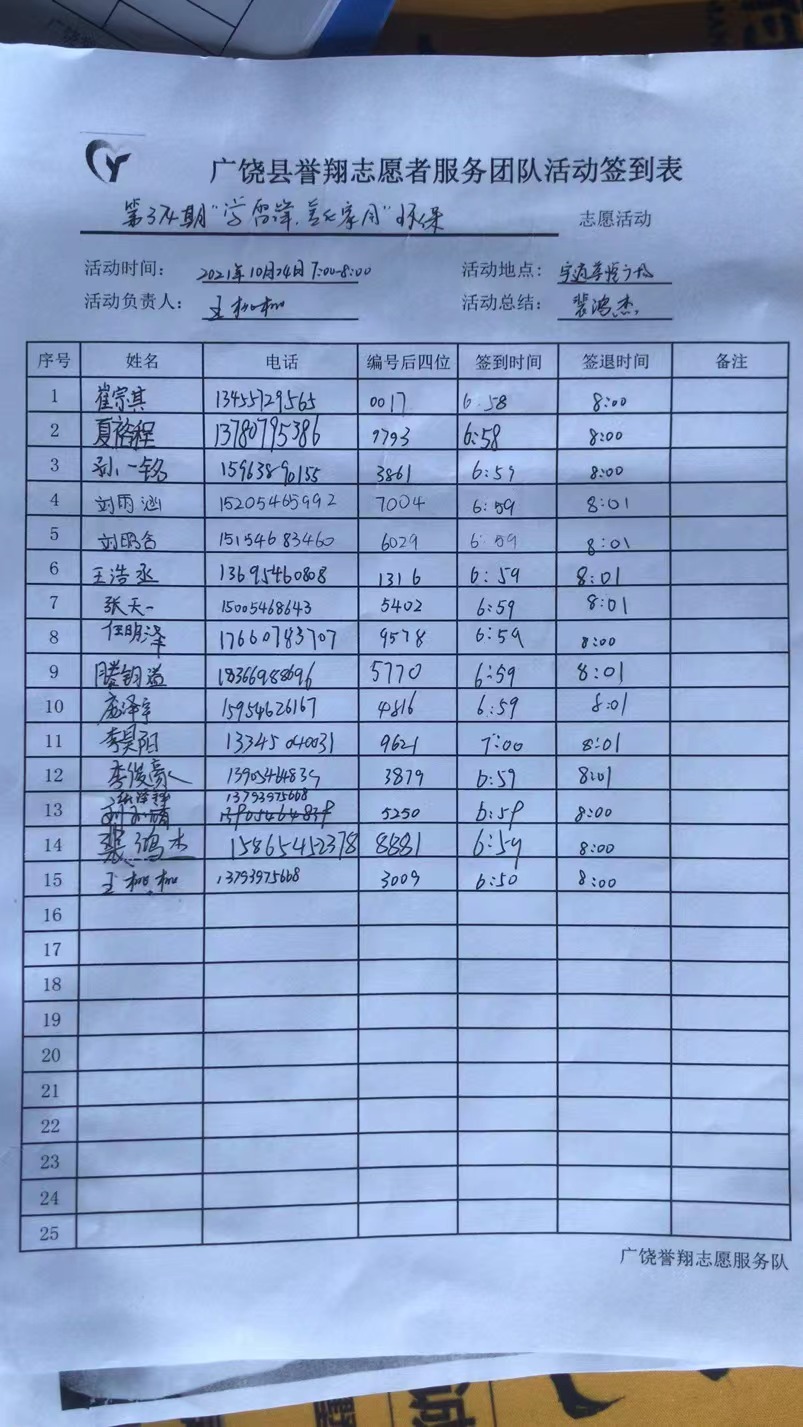 广饶县誉翔志愿者服务团队活动签到表
第374期"学雷锋、 环保 志愿活动
活动时间: 2021年10月24日7:00-8:00 活动地点:
活动负责人: 王 活动总结: 裴鸿杰
序号 姓名 电话 编号后四位 签到时间 签退时间 备注
1 崔宗其 13455729565 0017 6:58 8:00
2 夏裕程 13780795386 7793 6:58 8:00
3 孙一铭 15963890155 3861 6:59 8:00
4 刘雨涵 15205465992 7004 6:59 8:01
5 刘明 15154683460 6029 6:59 8:01
6 王浩丞 13695460808 1316 6:59 8:01
7 张天一 15005468643 5402 6:59 8:01
8 任明泽 17660783707 9578 6:59 8:00
9 滕翔 18366988696 5770 6:59 8:01
10 泽宇 15954626167 4816 6:59 8:01
11 李昊阳 13345040031 9621 7:00 8:01
12 李俊豪 3879 6:59 8:01
13 13793975668 5250 6:59 8:00
14 裴鸿杰 15865452378 8881 6:59 8:00
15 王 13793975668 3009 6:50 8:00
16
17
18
19
20
21
22
23
24
25
广饶誉翔志愿服务队